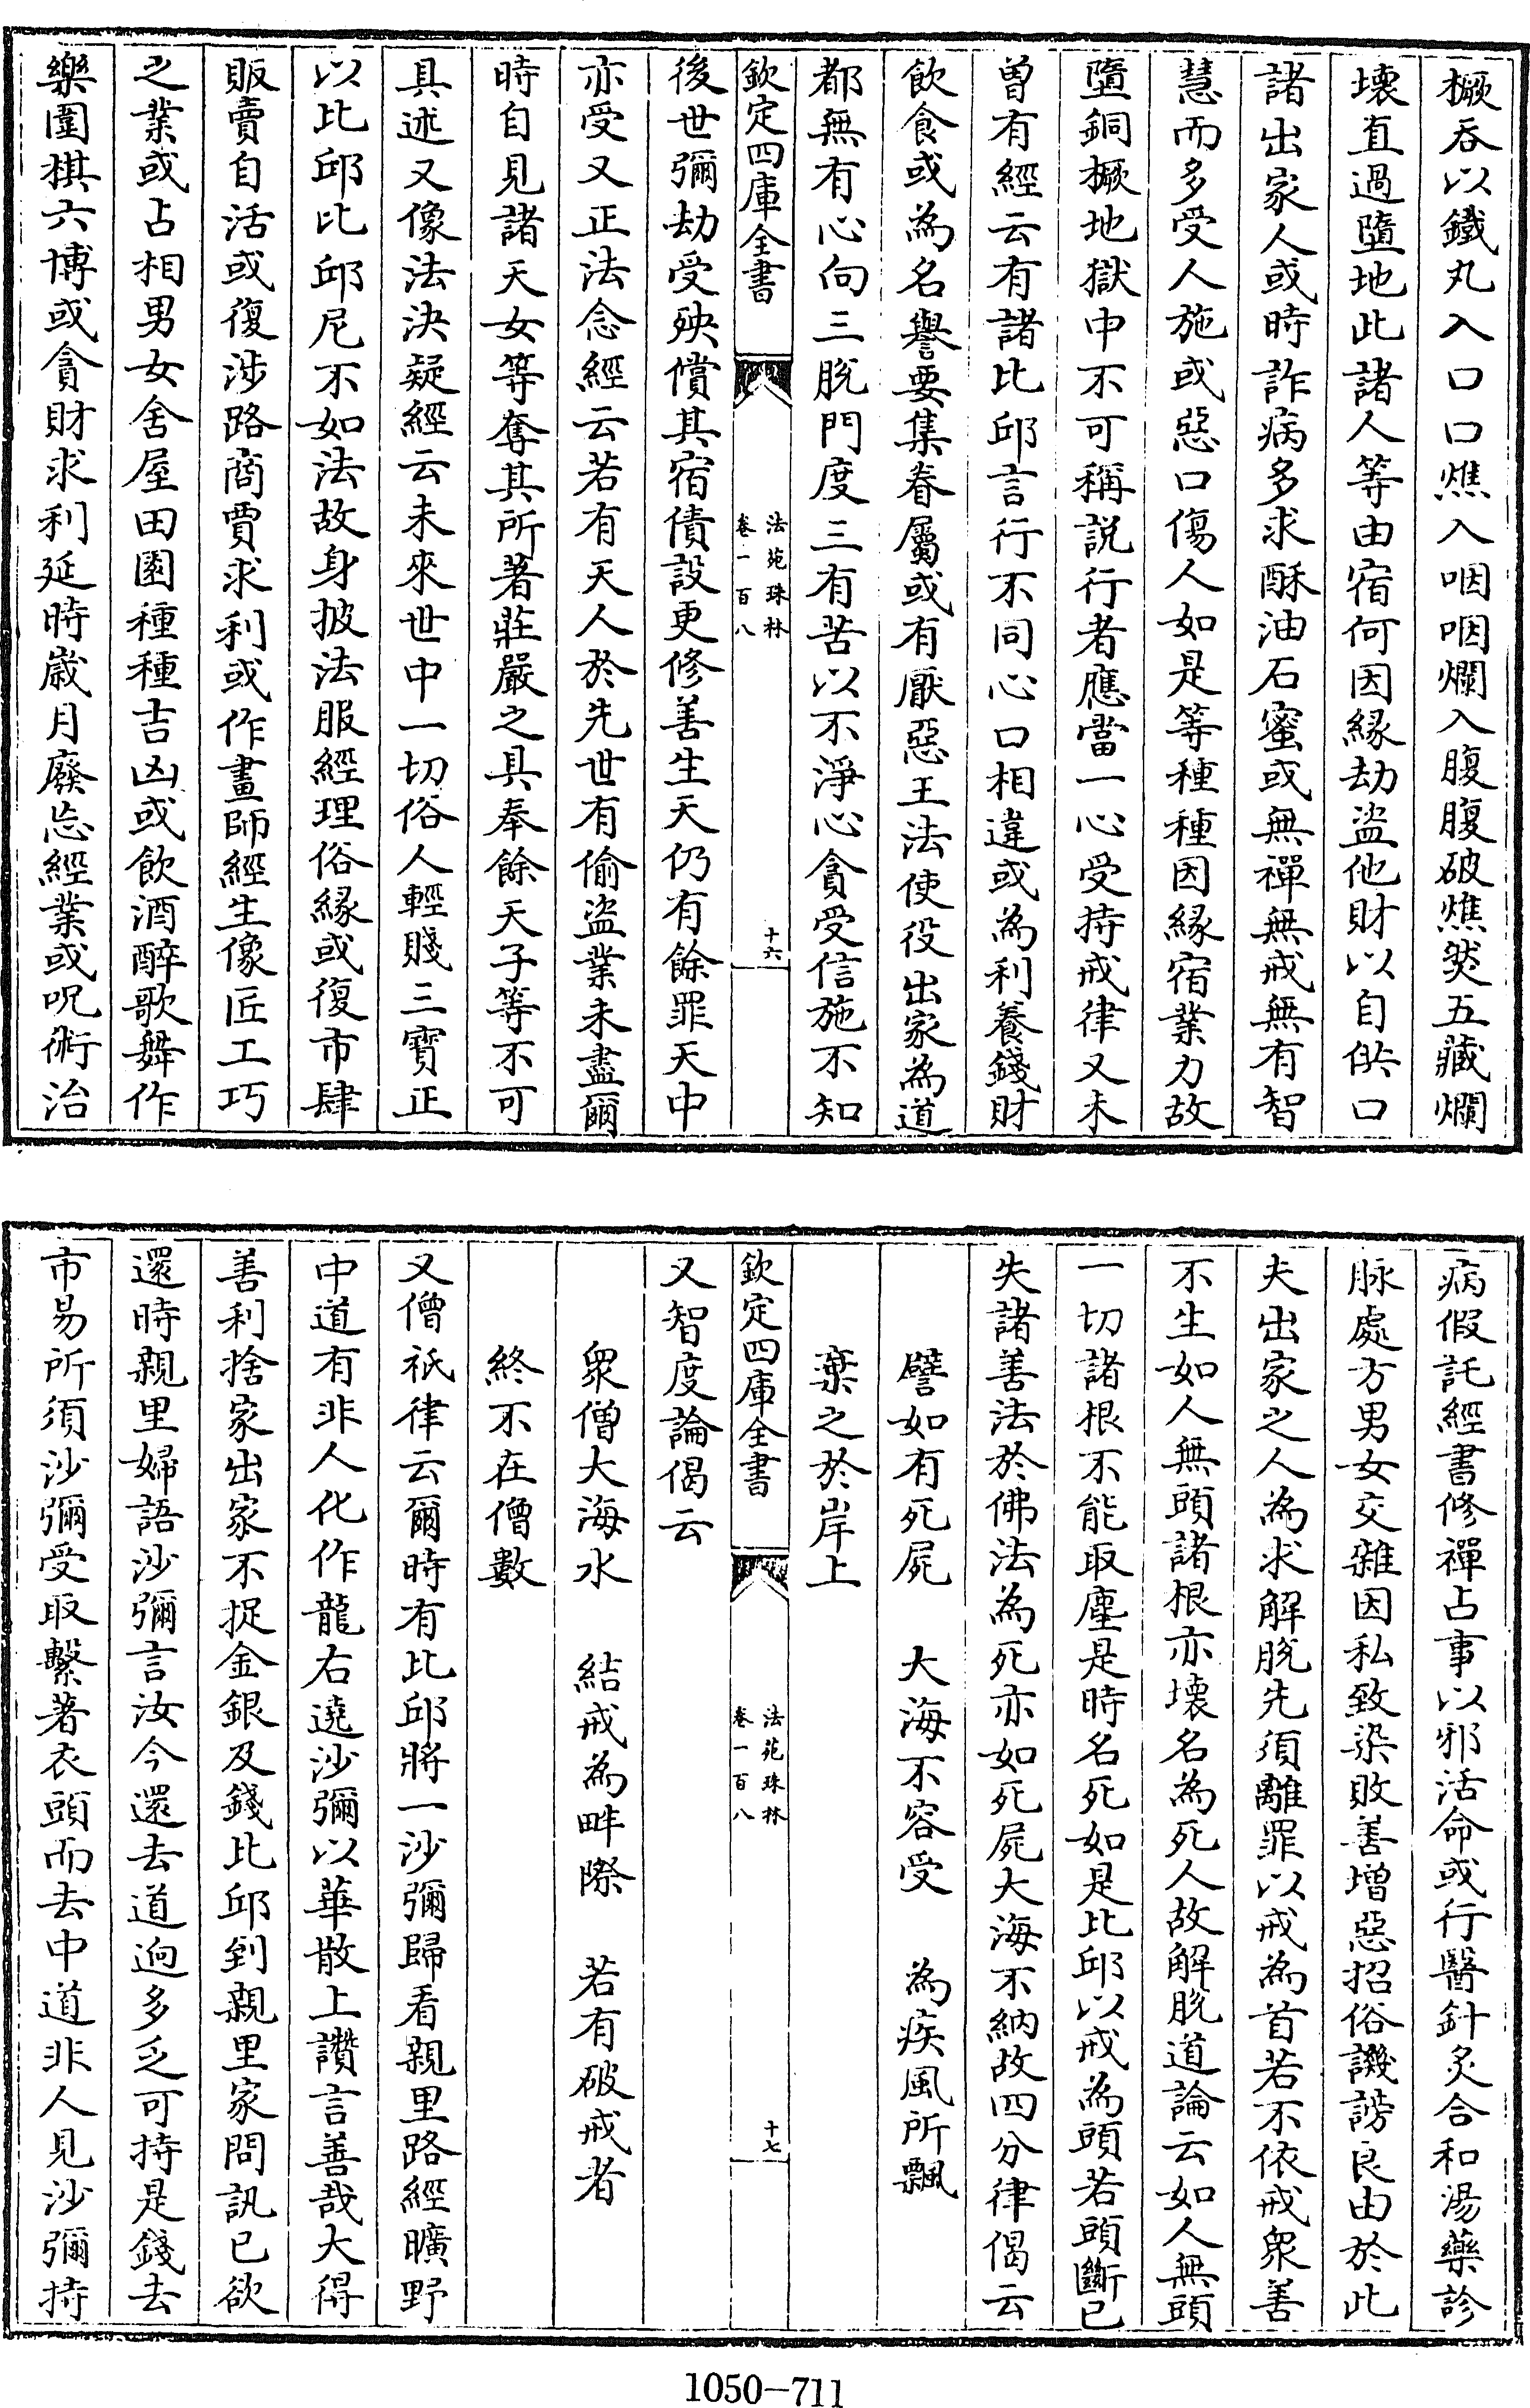 橛吞以鐵丸入口口燋入咽咽爛入腹腹破燋㷊五藏爛
壞直過墮地此諸人等由宿何因縁劫盜他財以自供口
諸出家人或時詐病多求酥油石蜜或無禪無戒無有智
慧而多受人施或惡口傷人如是等種種因縁宿業力故
墮銅橛地獄中不可稱説行者應當一心受持戒律又未
曾有經云有諸比邱言行不同心口相違或為利養錢財
飲食或為名譽要集眷屬或有厭惡王法使役出家為道
都無有心向三脫門度三有苦以不淨心貪受信施不知
欽定四庫全書
法苑珠林
卷一百八
十六
後世彌劫受殃償其宿債設更修善生天仍有餘罪天中
亦受又正法念經云若有天人於先世有偷盜業未盡爾
時自見諸天女等奪其所著莊嚴之具奉餘天子等不可
具述又像法決疑經云未來世中一切俗人輕賤三寳正
以比邱比邱尼不如法故身披法服經理俗縁或復市肆
販賣自活或復涉路商賈求利或作畫師經生像匠工巧
之業或占相男女舍屋田園種種吉凶或飲酒醉歌舞作
樂圍棋六博或貪財求利延時嵗月廢忘經業或呪術治
病假託經書修禪占事以邪活命或行醫針灸合和湯藥診
脉處方男女交雜因私致染敗善增惡招俗譏謗良由於此
夫出家之人為求解脫先須離罪以戒為首若不依戒衆善
不生如人無頭諸根亦壞名為死人故解脫道論云如人無頭
一切諸根不能取塵是時名死如是比邱以戒為頭若頭斷已
失諸善法於佛法為死亦如死屍大海不納故四分律偈云
譬如有死屍　大海不容受　為疾風所飄
棄之於岸上
欽定四庫全書
法苑珠林
卷一百八
十七
又智度論偈云
衆僧大海水　結戒為畔際　若有破戒者
終不在僧數
又僧祇律云爾時有比邱將一沙彌歸看親里路經曠野
中道有非人化作龍右遶沙彌以華散上讚言善哉大得
善利捨家出家不捉金銀及錢比邱到親里家問訊已欲
還時親里婦語沙彌言汝今還去道迥多乏可持是錢去
市易所須沙彌受取繫著衣頭而去中道非人見沙彌持
1050-711